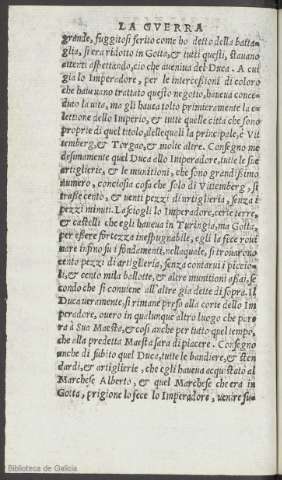 LA GVERRA
grande, fuggitosi ferito come ho detto della batta-
glia, si era ridotto in Gotta, & tutti questi, stauano
attenti aspettando, cio che aueniua del Duca. A cui
gia lo Imperadore, per le intercessioni di coloro
che haueuano trattato questo negotio, haueua conce-
duto la uita, ma gli haueua tolto primieramente la e-
lettione dello Imperio, & tutte quelle citta che sono
proprie di quel titolo, delle quali la principale, è Vit
temberg, & Torgao, & molte altre. Consegno me
desimamente quel Duca allo Imperadore, tutte le sue
artiglierie, & le munitioni, che sono grandissimo
numero, conciosia cosa che solo di Vittemberg, si
trasse cento, & uenti pezzi di artiglieria, senza i
pezzi minuti. Lasciogli lo Imperadore, certe terre,
& castelli che egli haueua in Turingia, ma Gotta,
per essere fortezza inespugnabile, egli la fece roui
nare insino su i fondamenti, nella quale, si trouarono
cento pezzi di artiglieria, senza contarui i piccio-
li, & cento mila ballotte, & altre munitioni assai, se
condo che si conuiene all'altre gia dette di sopra. Il
Duca ueramente, si rimane preso alla corte dello Im
peradore, ouero in qualunque altro luogo che pare
rà à Sua Maesta, & cosi anche per tutto quel tempo,
che alla predetta Maesta sara di piacere. Consegno
anche di subito quel Duca, tutte le bandiere, & sten
dardi, & artiglierie, che egli haueua acquistato al
Marchese Alberto, & quel Marchese che era in
Gotta, prigione lo fece lo Imperadore, uenire su-
Biblioteca de Galicia